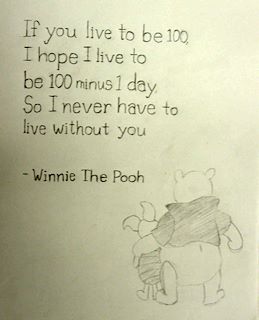 If you live to be 100,
I hope I live to
be 100 minus 1 day,
So I never have to
live without you
- Winnie The Pooh